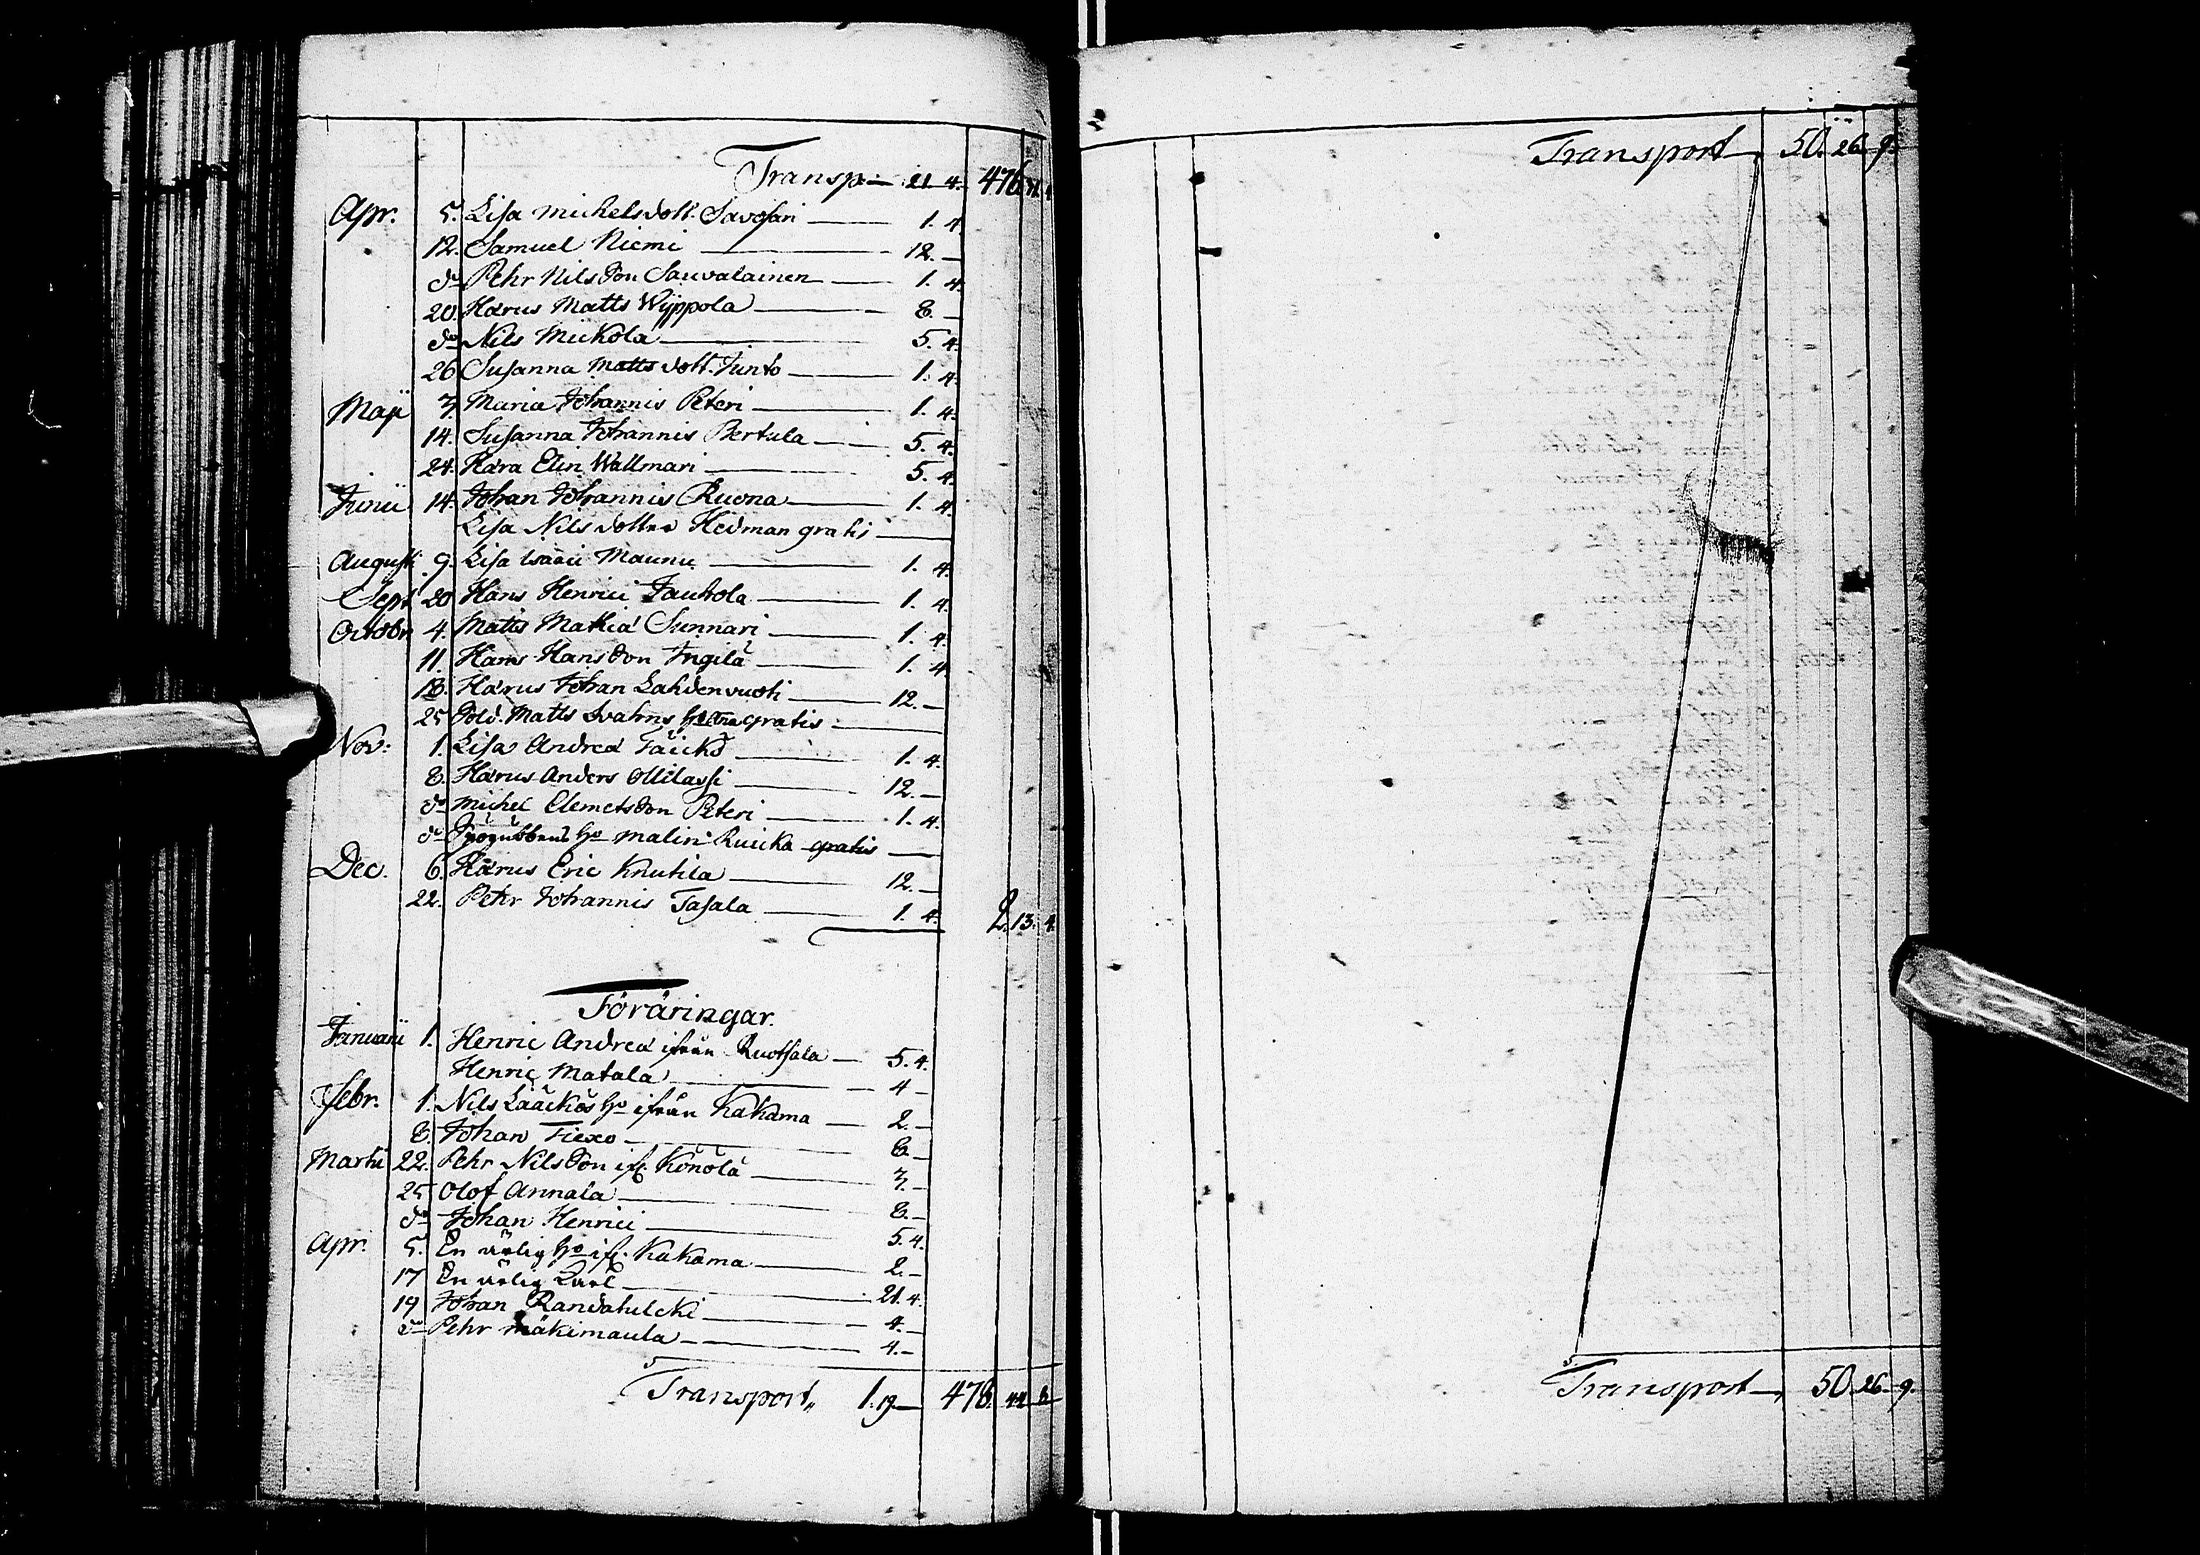 Transp: 21. 4. 476.
Apr. 5. Lisa Michelsdott. Savosari 1. 4.
12. Samuel Niemi 12. –
do Pehr Nilsson Sauvalainen 1. 4.
20. Harus Matts Wÿppola 8. –
do Nils Mickola 5. 4.
26. Susanna Matts dott. Junto 1. 4.
Maji 3. Maria Johannis Peteri 1. 4.
14. Susanna Johannis Bertula 5. 4.
24. Kära Elin Wallmari 5. 4.
Junii 14. Johan Johannis Ruona 1. 4.
Lisa Nils dotter Hedman gratis
Augusti 9. Lisa Isaaci Maunu 1. 4.
Sept. 20 Hans Henrici Jauhola 1. 4.
Octobr. 4. Matts Mathiæ Sunnari 1. 4.
11. Hans Hansson Ingilä 1. 4.
18. Harus Johan Lahdenvuoti 12. –
25 Sold. Matts gratis
Nov: 1. Lisa Andreæ 1. 4.
8. Harus Anders Ollilassi 12. –
do Michel Clemetsson Peteri 1. 4.
do hu Malin Ruicka gratis
Dec. 6. Harus Eric Knutila 12. –
22. Pehr Johannis Tasala 1. 4. 2. 13. 4.
Föräringar.
Januarii 1. Henric Andreæ ifrån Ruotsala 5. 4.
Henric Matala 4 –
Febr. 1. Nils Lääckös hu ifrån Kakama 2. –
8. Johan Fiexo 8. –
Martii 22. Pehr Nilsson if. Könölä 3. –
25 Olof Annala 8. –
do Johan Henrici 5. 4.
Apr. 5. En ärlig hu if. Kakama 2. –
17 En ärlig Karl 21. 4.
19 Johan Randahulcki 4. –
do Pehr Mäkimaula 4. –
Transport 1. 19 – 478. 44.
Transport 50. 26. 9.
Transport 50. 26. 9.